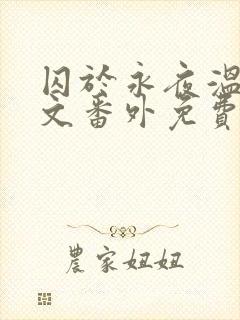 囚於永夜溫
文番外免費
農家妞妞